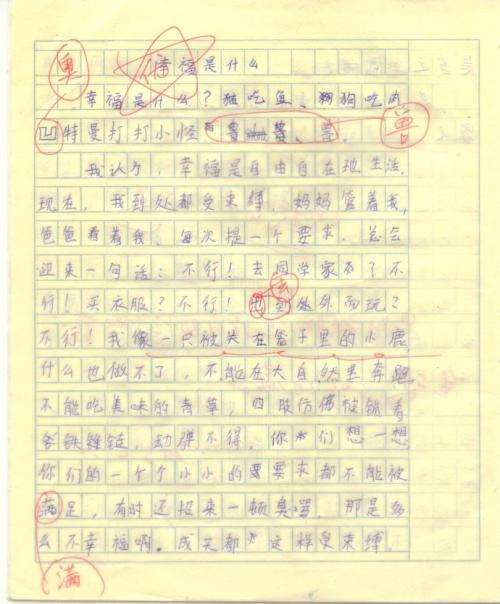 奥
幸福是什么
幸福是什么？猫吃鱼、狗狗吃肉
凹特曼打打小怪兽。
兽
我认为，幸福是自由自在地生活。
现在，我到处都受束缚，妈妈管着我，
爸爸看着我，每次提一个要求，总会
迎来一句话：不行！去同学家否？不
去
行！买衣服？不行！到处外面玩？
不行！我像一只被关在笼子里的小鹿，
什么也做不了，不能在大自然里奔跑
不能吃美味的青草，四肢仿佛被锁着
铁链，动弹不得。你们想一想，
你们的一个个小小的要求都不能被
满足，有时还招来一顿臭骂，那是多
么不幸福啊。成天都这样受束缚，
满